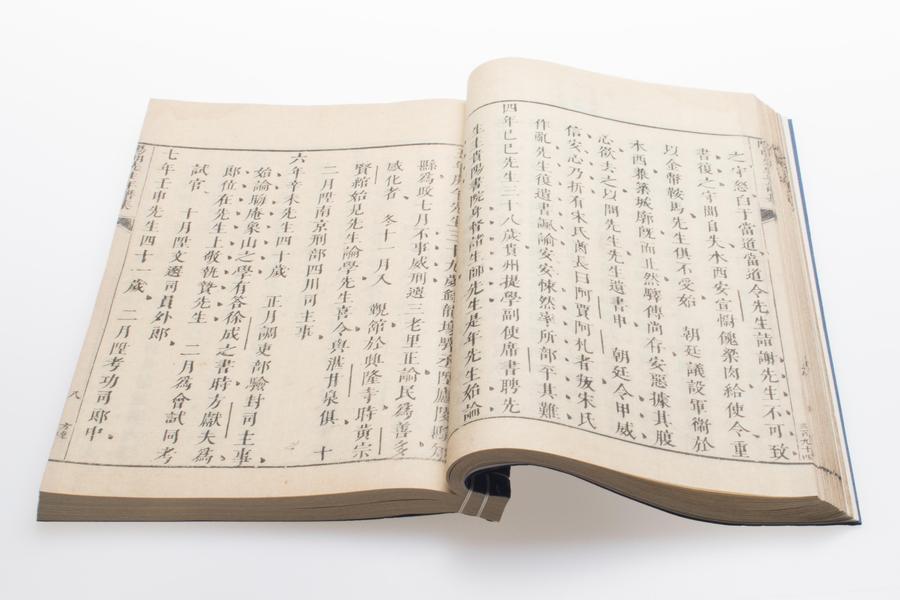 之守忿白于當道當道令先生請謝先生不可致
書復之守聞自失水西安宣慰餽粱肉給使令重
以金帛鞍馬先生俱不受始 朝廷議設軍衞於
水西兼築城廓既而止然驛傳尚存安惡據其腹
心欲去之以問先生先生遺書申 朝廷令甲威
信安心乃折有宋氏酋長曰阿賈阿札者叛宋氏
作亂先生復遺書諷諭安安悚然率所部平其難
四年己巳先生三十八歲貴州提學副使席書聘先
生主貴陽書院身督諸生師先生是年先生始論
五年庚午先生三十九歲
縣爲政七月不事威刑選三老里正諭民爲善多
感化者 冬十一月入 覲館於興隆寺時黄宗
賢綰始見先生論學先生喜令與湛甘泉俱 十
二月陞南京刑部四川司主事
六年辛未先生四十歲 正月調吏部驗封司主事
始論晦庵象山之學有答徐成之書時方獻夫爲
郎位在先生上敬執贄先生 二月爲會試同考
試官 十月陞文選司員外郎
七年壬申先生四十一歲 二月陞考功司郎中
八